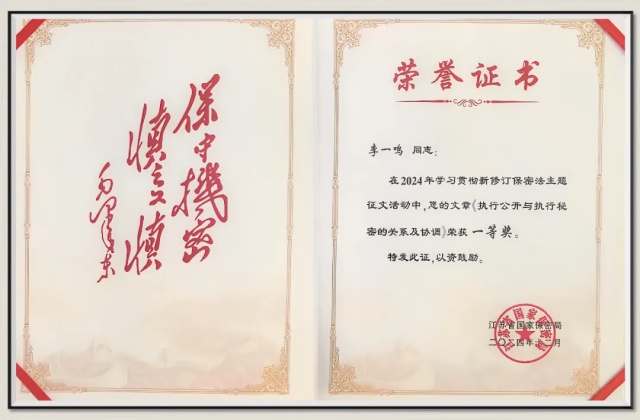 保守機密
慎之又慎
毛澤東
荣誉证书
李一鸣 同志：
在2024年学习贯彻新修订保密法主题
征文活动中，您的文章《执行公开与执行秘
密的关系及协调》荣获 一等奖。
特发此证，以资鼓励。
江苏省国家保密局
二〇二四年十二月
江苏省国家保密局